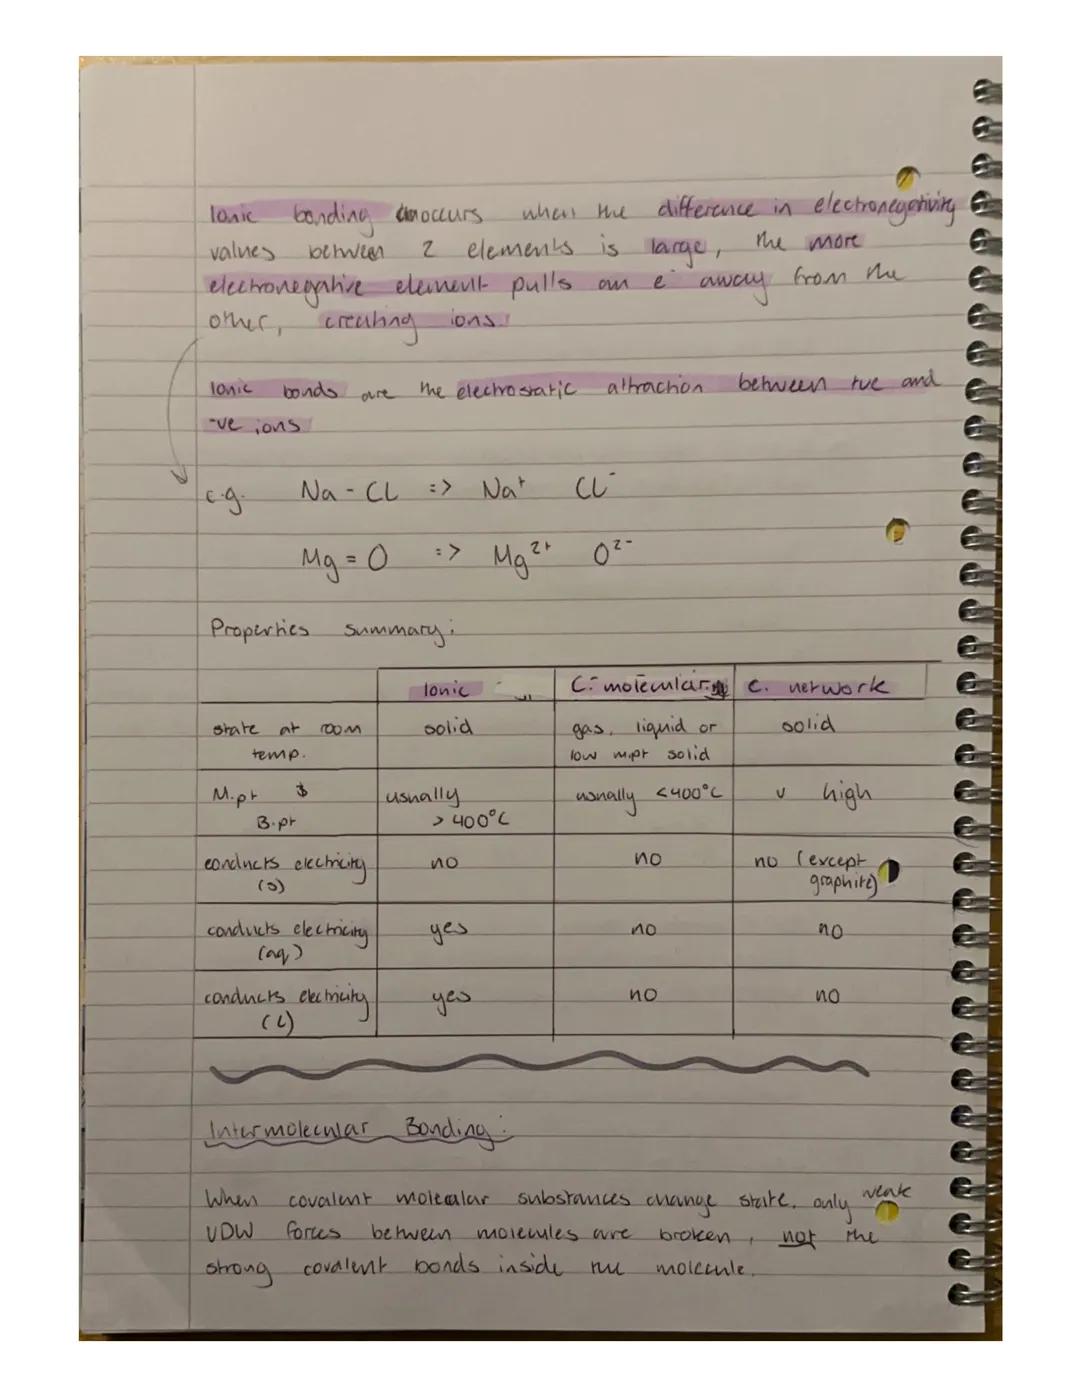 Ionic bonding occurs when the difference in electronegativity
values between 2 elements is large, the more
electronegative element pulls an e⁻ away from the
other, creating ions.
Ionic bonds are the electrostatic attraction between +ve and
-ve ions
e.g. Na - Cl => Na⁺ Cl⁻
Mg = O => Mg²⁺ O²⁻
Properties summary:
Ionic C. molecular C. network
state at room temp. solid gas, liquid or low m.pt solid solid
M.pt & B.pt usually > 400°C usually <400°C v high
conducts electricity (s) no no no (except graphite)
conducts electricity (aq) yes no no
conducts electricity (l) yes no no
Intermolecular Bonding:
When covalent molecular substances change state, only weak
VDW forces between molecules are broken, not the
strong covalent bonds inside the molecule.